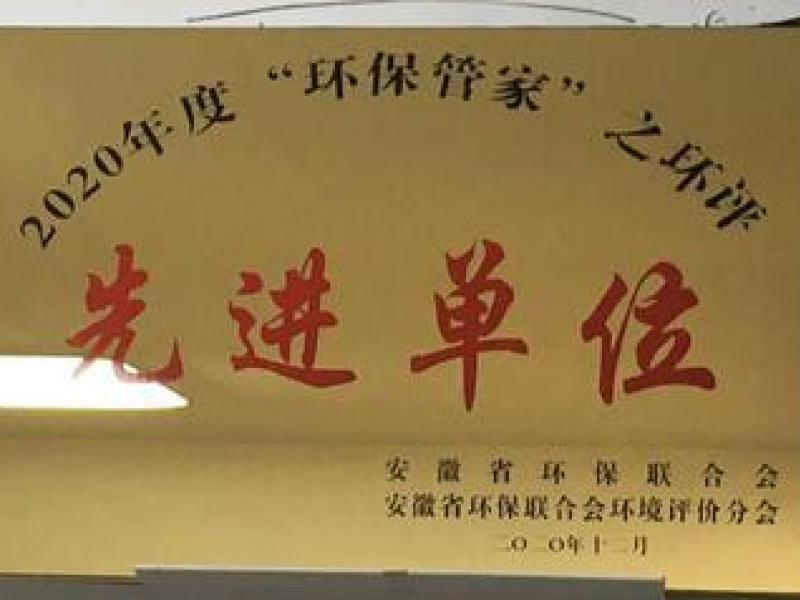 2020年度“环保管家”之环评
先进单位
安徽省环保联合会
安徽省环保联合会环境评价分会
二〇二〇年十二月